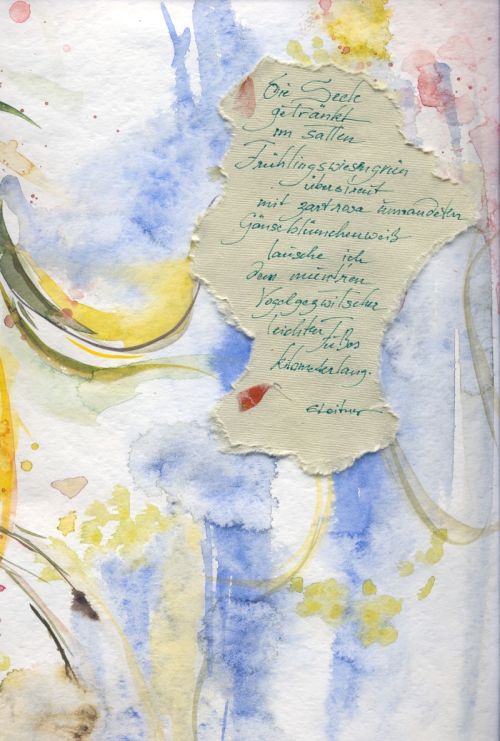 Die Seele
getränkt
im satten
Frühlingswiesengrün
überstreut
mit zartrosa umrandeten
Gänseblümchenweiß
lausche ich
dem muntren
Vogelgezwitscher
leichten Fußes
kilometerlang.